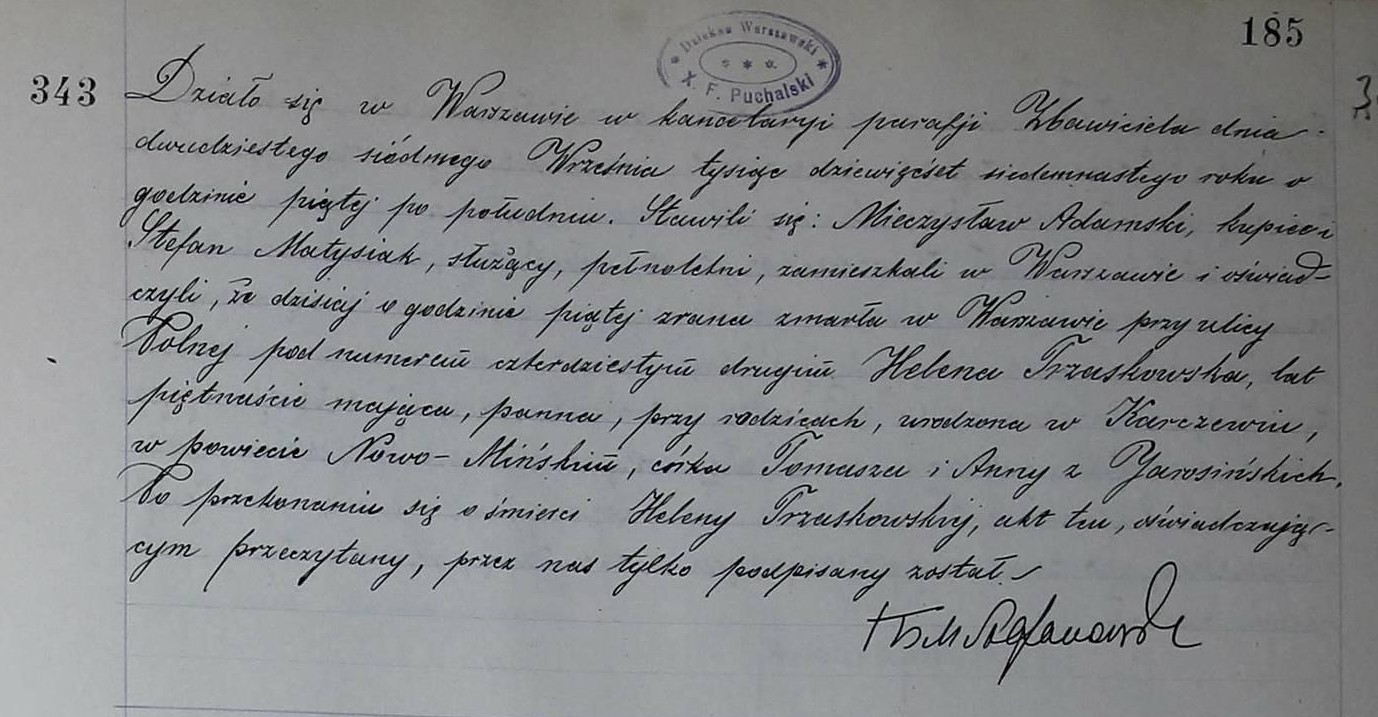 185
Dziekan Warszawski
X. F. Puchalski
343
Działo się w Warszawie w kancelaryi parafji Zbawiciela dnia
dwudziestego siódmego Września tysiąc dziewięćset siedemnastego roku o
godzinie piątej po południu. Stawili się: Mieczysław Adamski, kupiec i
Stefan Matysiak, służący, pełnoletni, zamieszkali w Warszawie i oświad-
czyli, że dzisiaj o godzinie piątej zrana zmarła w Warszawie przy ulicy
Polnej pod numerem czterdziestym drugim Helena Trzaskowska, lat
piętnaście mająca, panna, przy rodzicach, urodzona w Karczewiu,
w powiecie Nowo-Mińskim, córka Tomasza i Anny z Jarosińskich.
Po przekonaniu się o śmierci Heleny Trzaskowskiej, akt ten, oświadczają-
cym przeczytany, przez nas tylko podpisany został.